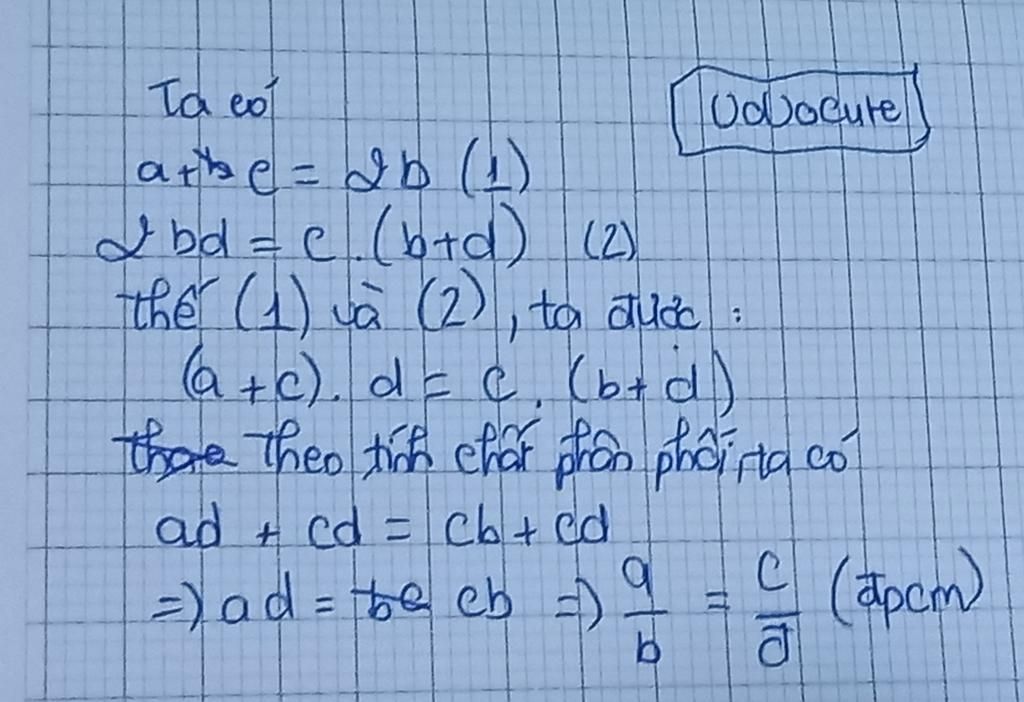 Ta có
VoVoCute
a + c = 2b (1)
2bd = c.(b+d) (2)
thế (1) và (2), ta được :
(a + c). d = c. (b + d)
Theo tính chất phân phối, ta có
ad + cd = cb + cd
=> ad = cb => a/b = c/d (đpcm)